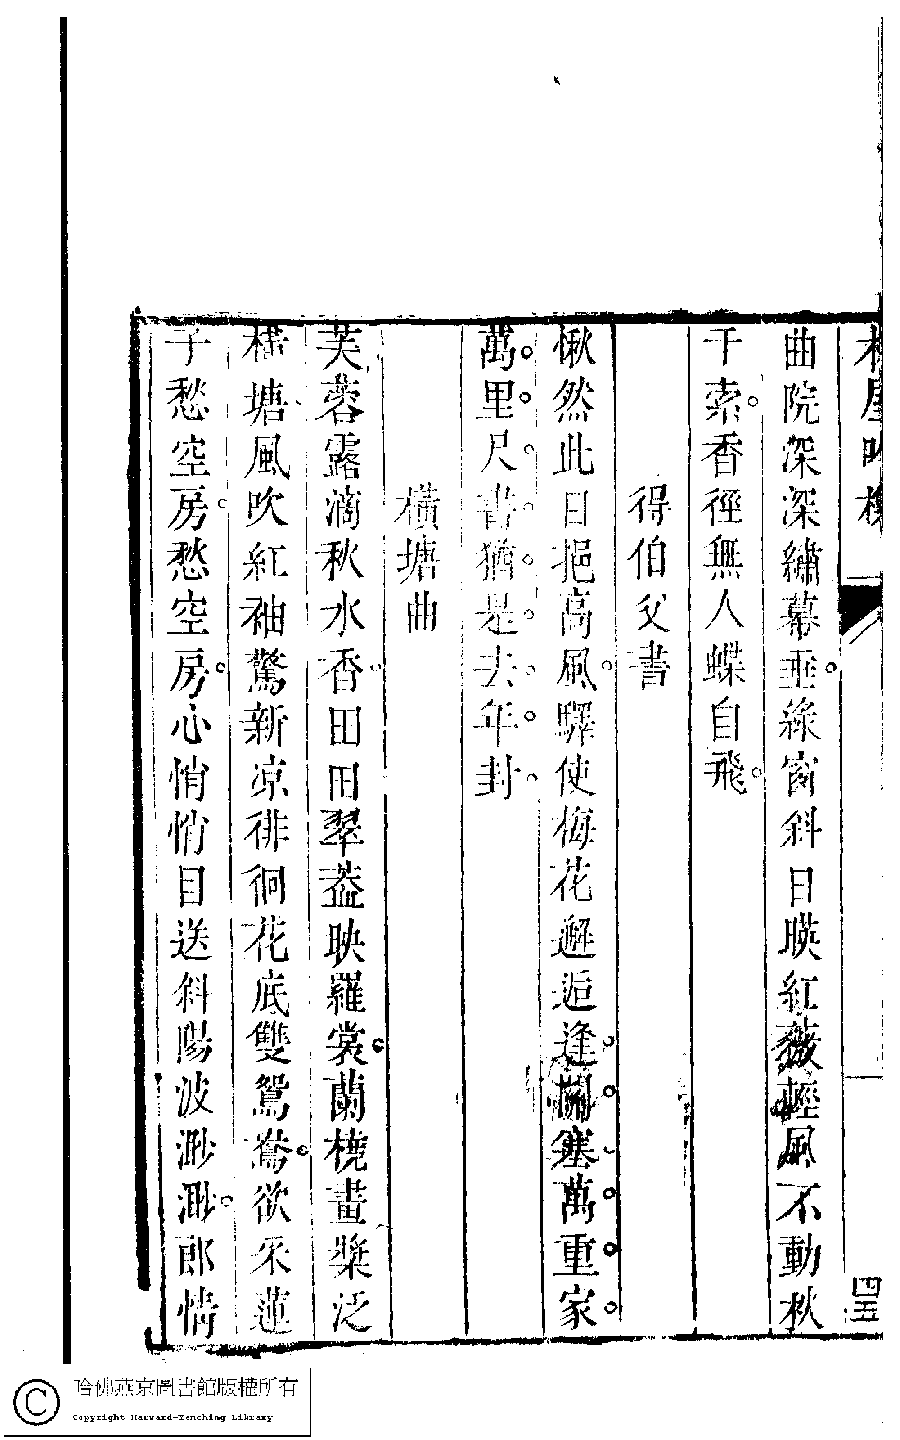 林屋吟榭
四五
曲院深深繡幕垂綠窗斜日暎紅薇輕風不動秋
千索香徑無人蝶自飛
得伯父書
愀然此日挹高風驛使梅花邂逅逢關塞萬重家
萬里尺書猶是去年封
橫塘曲
芙蓉露滴秋水香田田翠葢映羅裳蘭橈畫槳泛
橫塘風吹紅袖驚新凉徘徊花底雙鴛鴦欲采蓮
子愁空房愁空房心悄悄目送斜陽波渺渺郎情
哈佛燕京圖書館版權所有
Copyright Harvard-Yenching Library